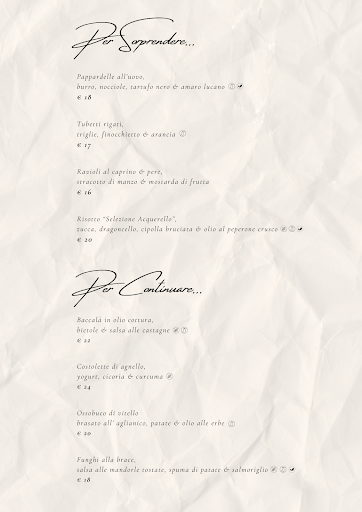 Per Sorprendere...
Pappardelle all'uovo,
burro, nocciole, tartufo nero & amaro lucano
€ 18
Tubetti rigati,
triglie, finocchietto & arancia
€ 17
Ravioli al caprino & pere,
stracotto di manzo & mostarda di frutta
€ 16
Risotto "Selezione Acquerello",
zucca, dragoncello, cipolla bruciata & olio al peperone crusco
€ 20
Per Continuare...
Baccalà in olio cottura,
bietole & salsa alle castagne
€ 22
Costolette di agnello,
yogurt, cicoria & curcuma
€ 24
Ossobuco di vitello
brasato all' aglianico, patate & olio alle erbe
€ 20
Funghi alla brace,
salsa alle mandorle tostate, spuma di patate & salmoriglio
€ 18